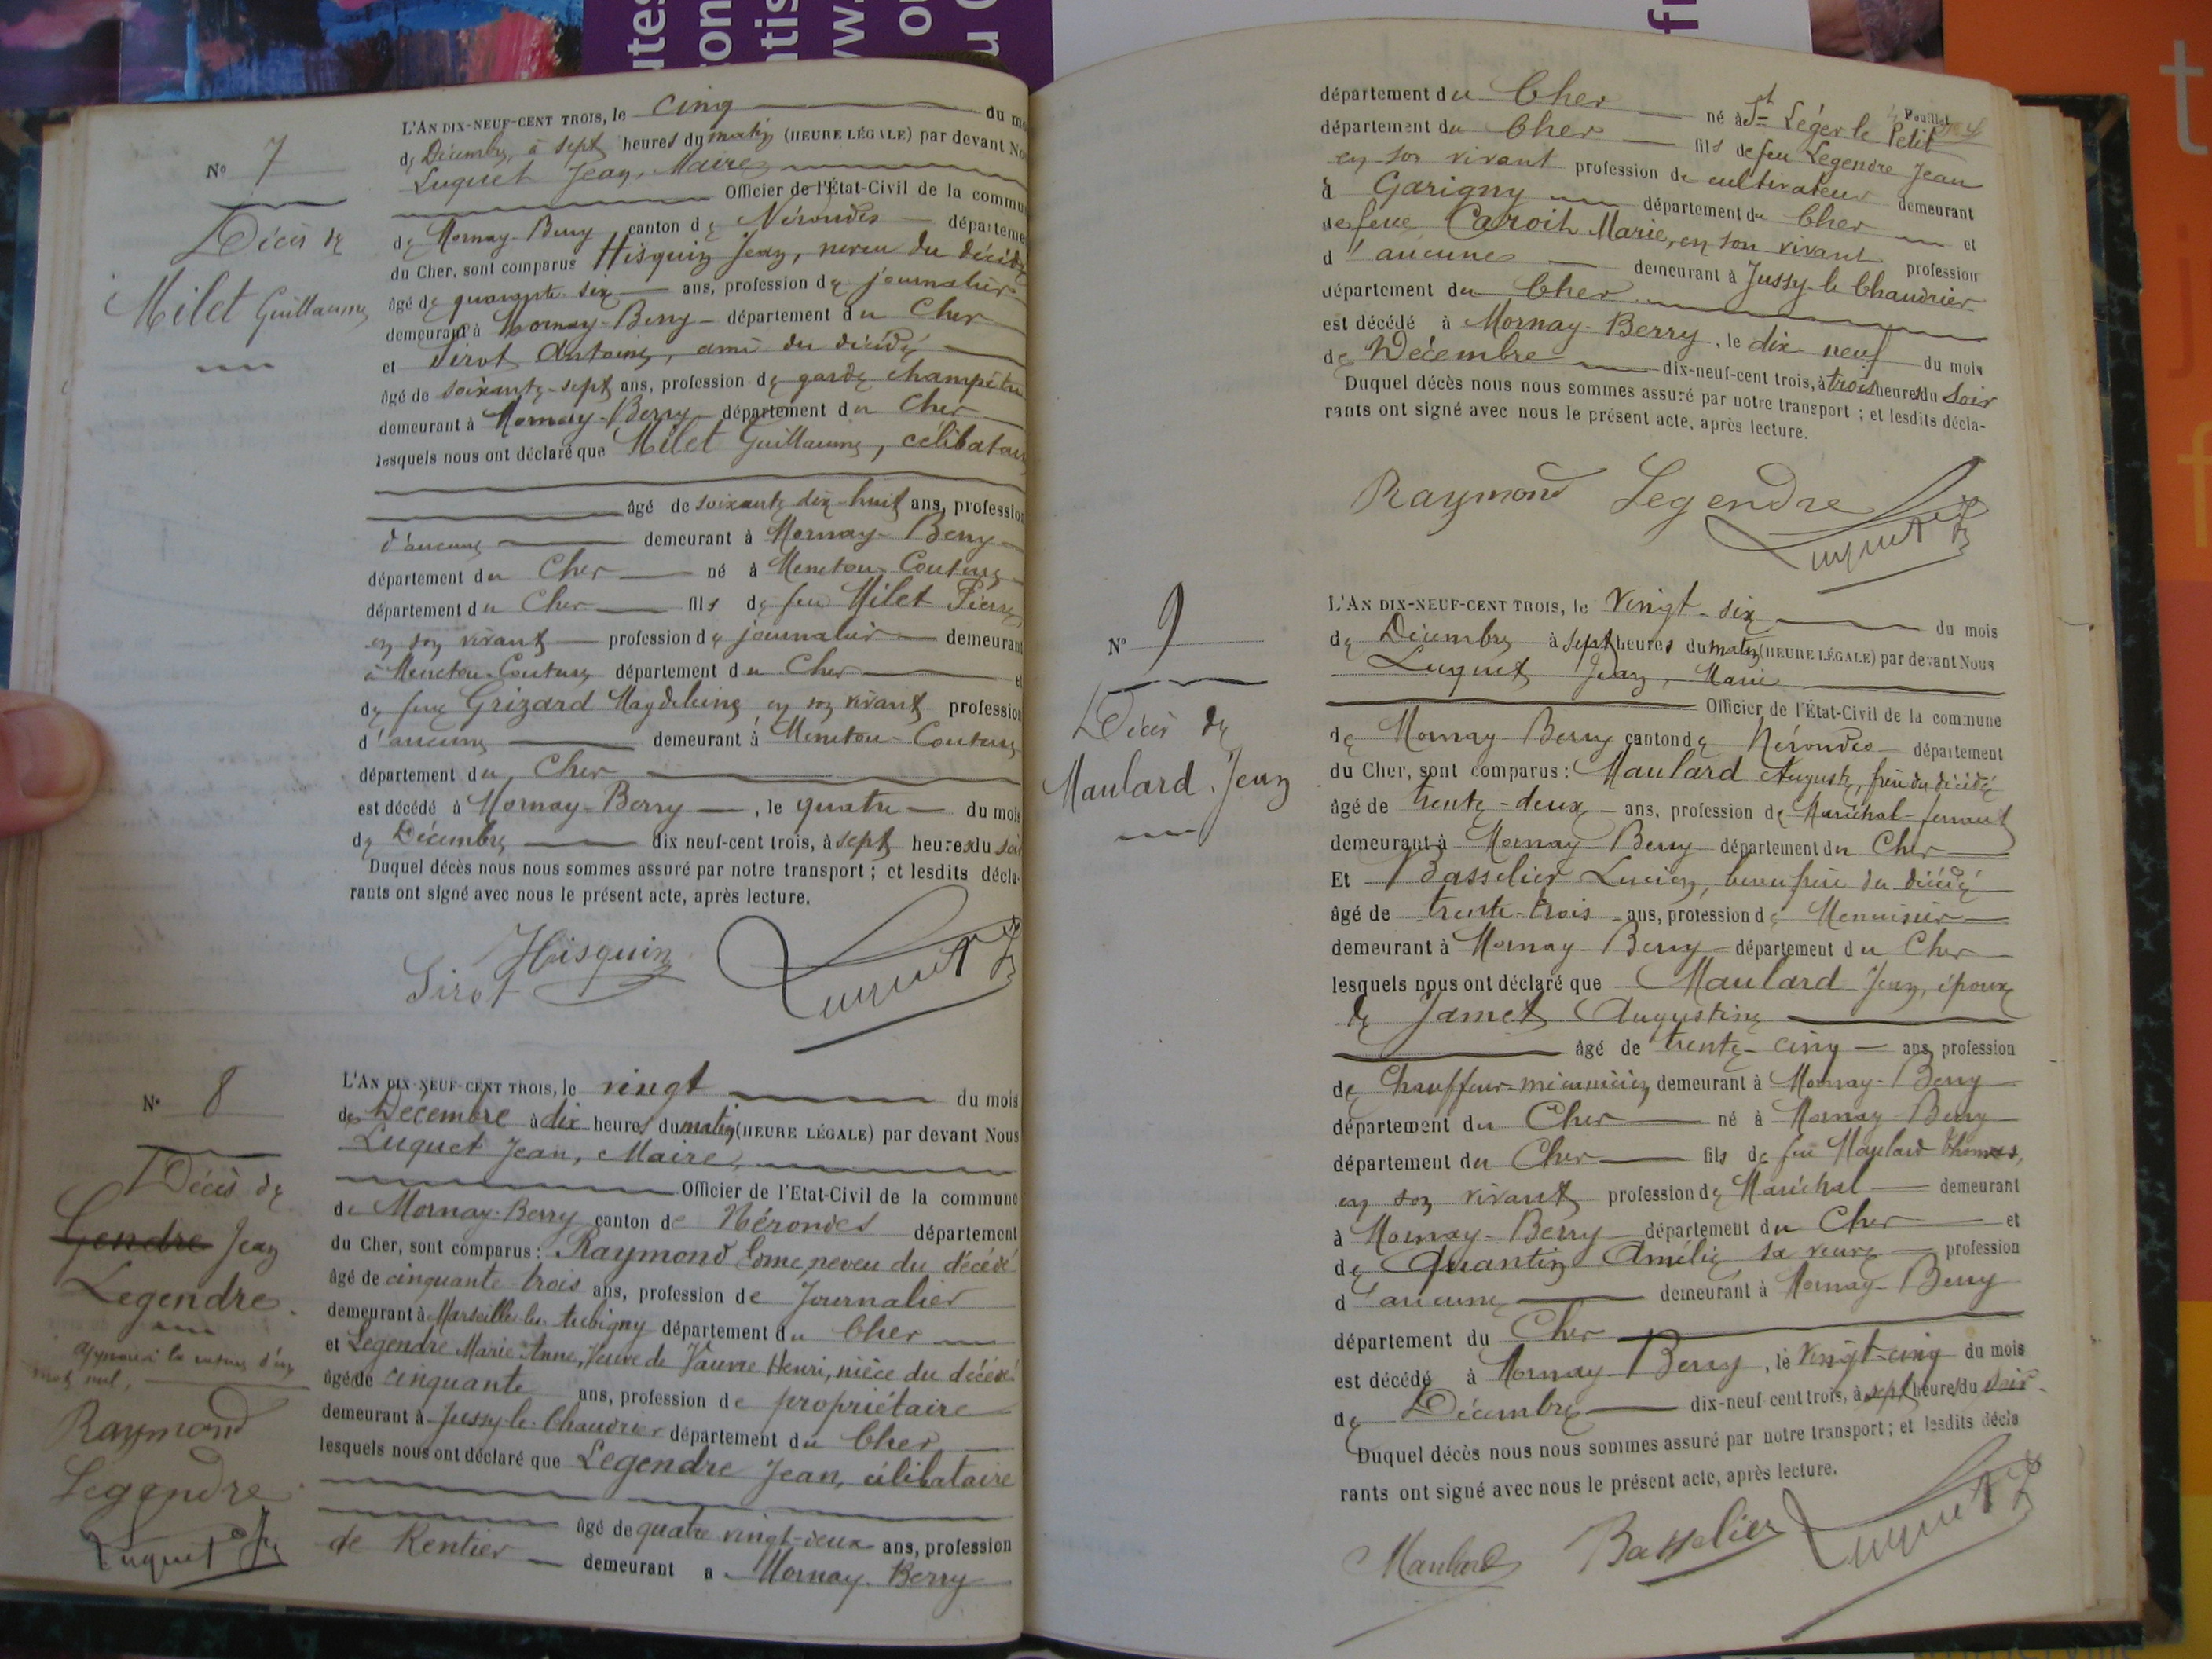 N° 7
Décès de
Milet Guillaume
L'AN DIX-NEUF-CENT TROIS, le cinq du mo
de Décembre, à sept heures du matin (HEURE LÉGALE) par devant No
Luquet Jean, Maire
Officier de l'État-Civil de la commu
de Mornay-Berry canton de Nérondes départeme
du Cher, sont comparus Hisquin Jean, neveu du décédé
âgé de quarante-six ans, profession de journalier
demeurant à Mornay-Berry département du Cher
et Sirot Antoine, ami du décédé
âgé de soixante-sept ans, profession de garde champêtre
demeurant à Mornay-Berry département du Cher
lesquels nous ont déclaré que Milet Guillaume, célibataire
âgé de soixante dix-huit ans, profession
d'aucune demeurant à Mornay-Berry
département du Cher né à Menetou-Couture
département du Cher fils de feu Milet Pierre,
en son vivant profession de journalier demeurant
à Menetou-Couture département du Cher et
de feue Grizard Magdeleine en son vivant profession
d'aucune demeurant à Menetou-Couture
département du Cher
est décédé à Mornay-Berry, le quatre du mois
de Décembre dix neuf-cent trois, à sept heures du soir
Duquel décès nous nous sommes assuré par notre transport ; et lesdits décla-
rants ont signé avec nous le présent acte, après lecture.
Hisquin
Sirot Luquet J
N° 8
Décès de
Gendre Jean
Legendre.
approuvé la rature d'un
mot nul,
Raymond
Legendre
Luquet J
L'AN DIX-NEUF-CENT TROIS, le vingt du mois
de Décembre à dix heures du matin (HEURE LÉGALE) par devant Nous
Luquet Jean, Maire,
Officier de l'Etat-Civil de la commune
de Mornay-Berry canton de Nérondes département
du Cher, sont comparus : Raymond Côme, neveu du décédé
âgé de cinquante-trois ans, profession de Journalier
demeurant à Marseilles-les-Aubigny département du Cher
et Legendre Marie Anne, Veuve de Vauvre Henri, nièce du décédé
âgé de cinquante ans, profession de propriétaire
demeurant à Jussy-le-Chaudrier département du Cher
lesquels nous ont déclaré que Legendre Jean, célibataire
âgé de quatre vingt-deux ans, profession
de Rentier demeurant a Mornay-Berry
Feuillet
département du Cher né à St Léger le Petit
département du Cher fils de feu Legendre Jean
en son vivant profession de cultivateur demeurant
à Garigny département du Cher et
de feue Caroit Marie, en son vivant profession
d'aucune demeurant à Jussy-le Chaudrier
département du Cher
est décédé à Mornay-Berry, le dix-neuf du mois
de Décembre dix-neuf-cent trois, à trois heures du soir
Duquel décès nous nous sommes assuré par notre transport ; et lesdits décla-
rants ont signé avec nous le présent acte, après lecture.
Raymond Legendre
Luquet J
N° 9
Décès de
Maulard Jean
L'AN DIX-NEUF-CENT TROIS, le vingt-six du mois
de Décembre à sept heures du matin (HEURE LÉGALE) par devant Nous
Luquet Jean, Maire
Officier de l'État-Civil de la commune
de Mornay-Berry canton de Nérondes département
du Cher, sont comparus : Maulard Auguste, frère du décédé
âgé de trente-deux ans, profession de Maréchal-ferrant
demeurant à Mornay-Berry département du Cher
Et Basselier Lucien, beau frère du décédé
âgé de trente-trois ans, profession de Menuisier
demeurant à Mornay-Berry département du Cher
lesquels nous ont déclaré que Maulard Jean, époux
de Jamet Augustine
âgé de trente-cinq ans, profession
de Chauffeur-mécanicien demeurant à Mornay-Berry
département du Cher né à Mornay-Berry
département du Cher fils de feu Maulard Thomas,
en son vivant profession de Maréchal demeurant
à Mornay-Berry département du Cher et
de Quantin Amélie, sa veuve profession
d'aucune demeurant à Mornay-Berry
département du Cher
est décédé à Mornay-Berry, le vingt-cinq du mois
de Décembre dix-neuf-cent trois, à sept heures du soir.
Duquel décès nous nous sommes assuré par notre transport ; et lesdits décla
rants ont signé avec nous le présent acte, après lecture.
Maulard Basselier Luquet J